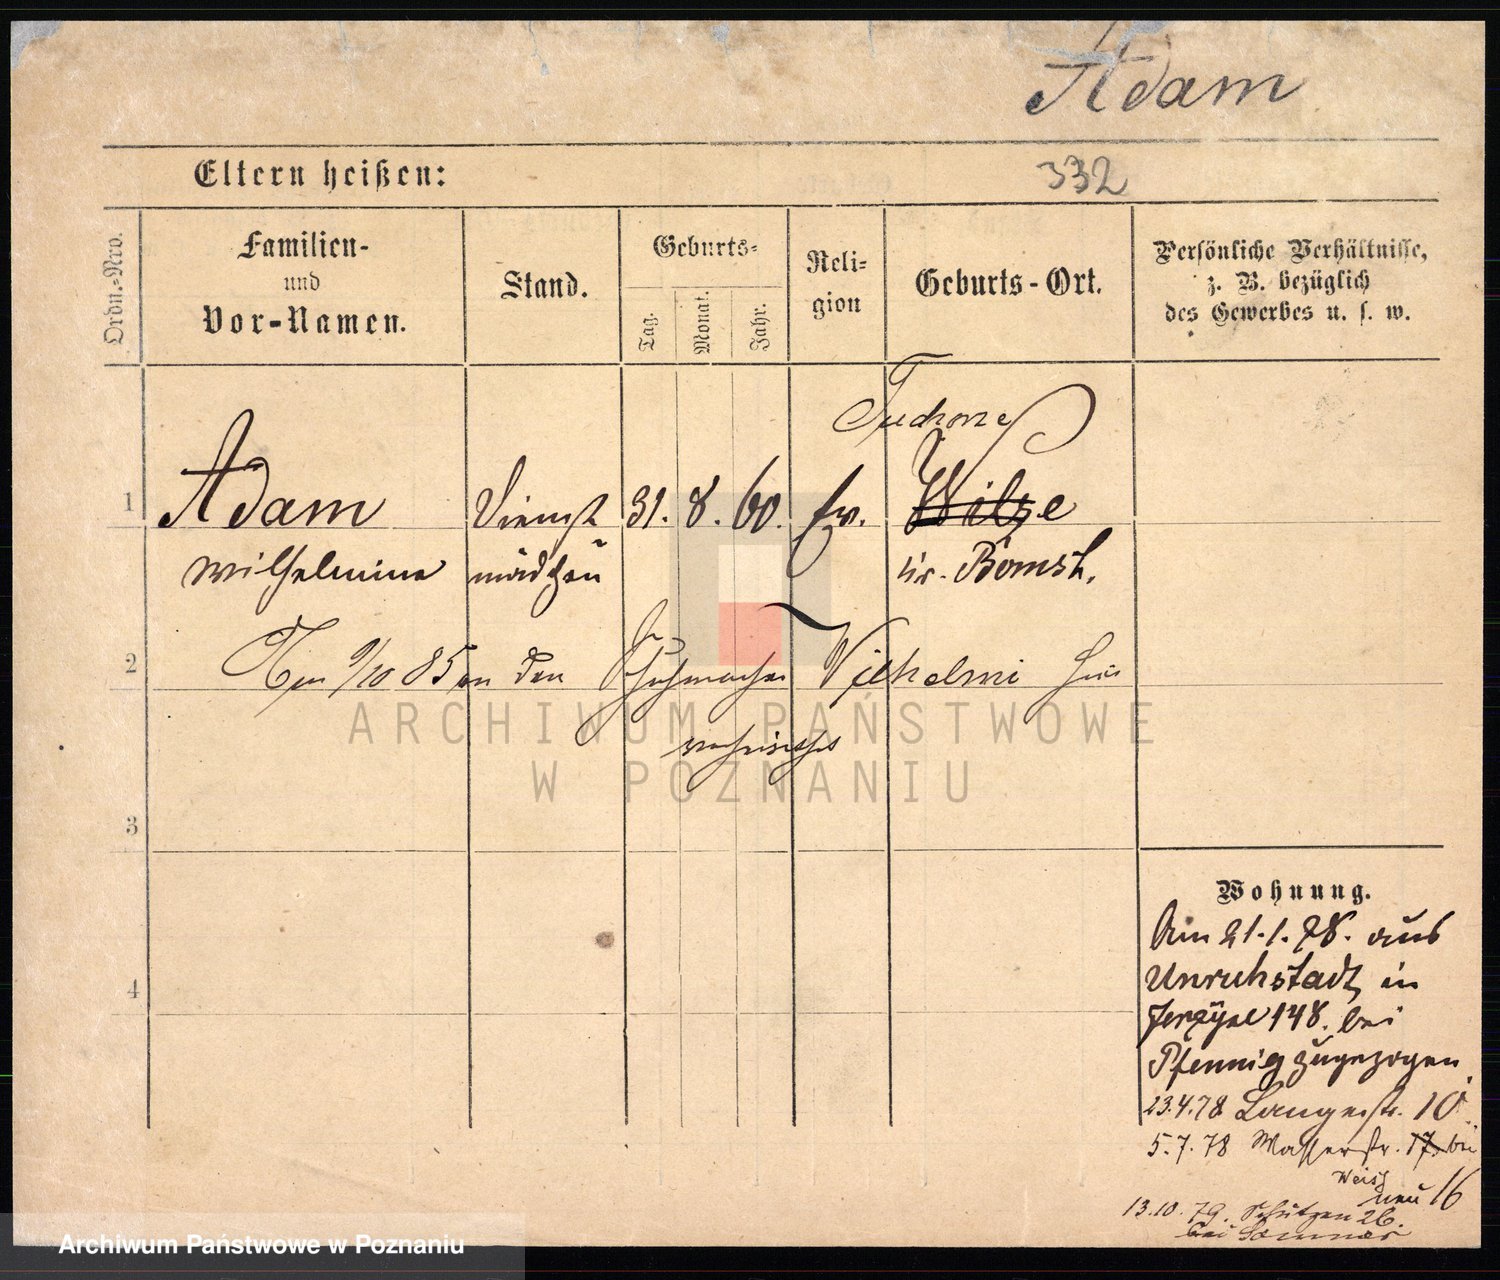 Adam
Eltern heißen:
332
Ordn.-Nro.
Familien-
und
Vor-Namen.
Stand.
Geburts-
Tag.
Monat.
Jahr.
Reli-
gion
Geburts-Ort.
Persönliche Verhältnisse,
z. B. bezüglich
des Gewerbes u. s. w.
1
Adam
Wilhelmine
Dienst
mädchen
31. 8. 60. Ev.
Wilze
Kr. Bomst.
2
Am 9/10 85 an den Schuhmacher Wilhelmi hier
3
4
ARCHIWUM PAŃSTWOWE
W POZNANIU
Wohnung.
Am 21.1.78. aus
Unruhstadt in
Jerzyce 148. bei
Pfennig zugezogen
23.4.78 Langestr. 10
5.7.78 Wasserstr. 17. bei
Weiss
neu 16
13.10.79. Schützen 26.
bei Sommer
Archiwum Państwowe w Poznaniu